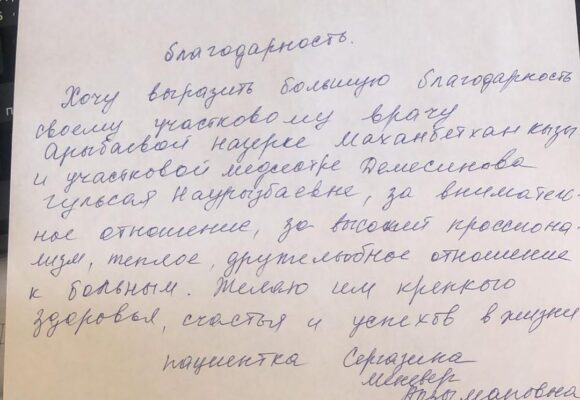 благодарность.
Хочу выразить большую благодарность
своему участковому врачу
Арыбаевой Назерке Маханбетхан кызы
и участковой медсестре Демесинова
Гульсая Наурызбаевне, за вниматель-
ное отношение, за высокий прассиона-
лизм, теплое, дружелюбное отношение
к больным. Желаю им крепкого
здоровья, счастья и успехов в жизни
пациентка Сергазина
Меневер